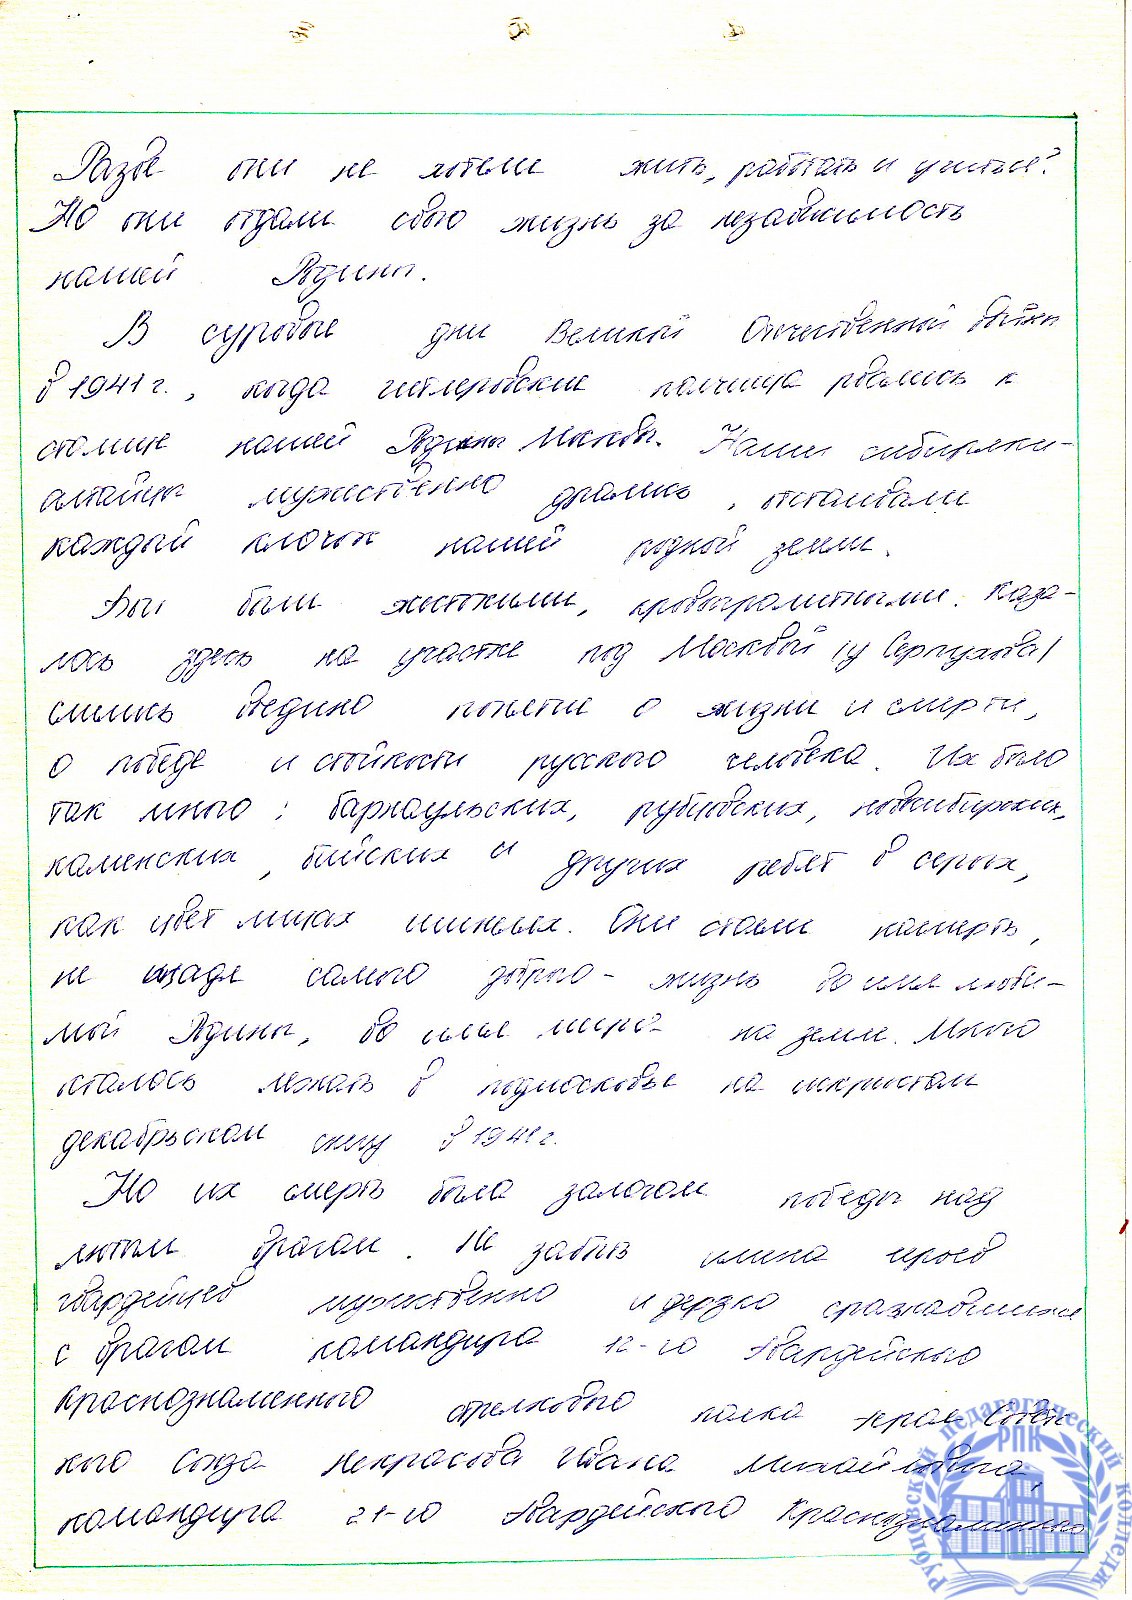 Разве они не хотели жить, работать и учиться?
Но они отдали свою жизнь за независимость
нашей Родины.
В суровые дни Великой Отечественной войны
в 1941 г., когда гитлеровские полчища рвались к
столице нашей Родины Москвы. Наши сибиряки-
алтайцы мужественно дрались, отстаивали
каждый клочок нашей родной земли.
Бои были жестокими, кровопролитными. Каза-
лось здесь на участке под Москвой /у Серпухова/
слились воедино понятие о жизни и смерти,
о победе и стойкости русского человека. Их было
так много: барнаульских, рубцовских, новосибирских,
каменских, бийских и других ребят в серых,
как цвет милых шинелях. Они стояли насмерть,
не щадя самого доброго - жизнь во имя люби-
мой Родины, во имя мира на земле. Много
осталось лежать в подмосковье на искристом
декабрьском снегу в 1941 г.
Но их смерть была залогом победы над
лютым врагом. Не забыть имена героев
гвардейцев мужественно и дерзко сражавшихся
с врагом командира 12-го Гвардейского
Краснознаменного стрелкового полка героя Совет-
кого Союза Некрасова Ивана Михайловича,
командира 21-го Гвардейского Краснознаменного
Рубцовский педагогический колледж
РПК